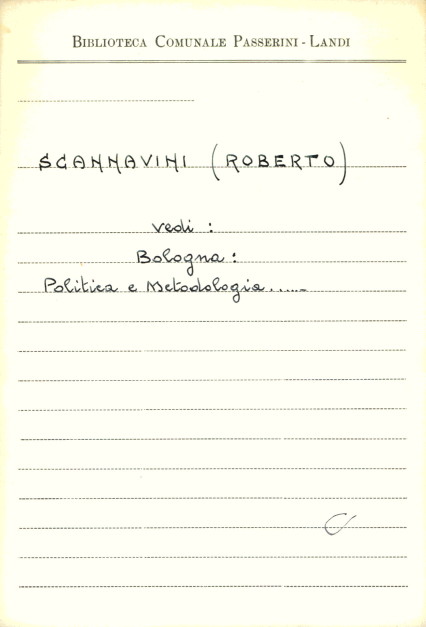 BIBLIOTECA COMUNALE PASSERINI - LANDI
SCANNAVINI (ROBERTO)
vedi :
Bologna :
Politica e Metodologia......